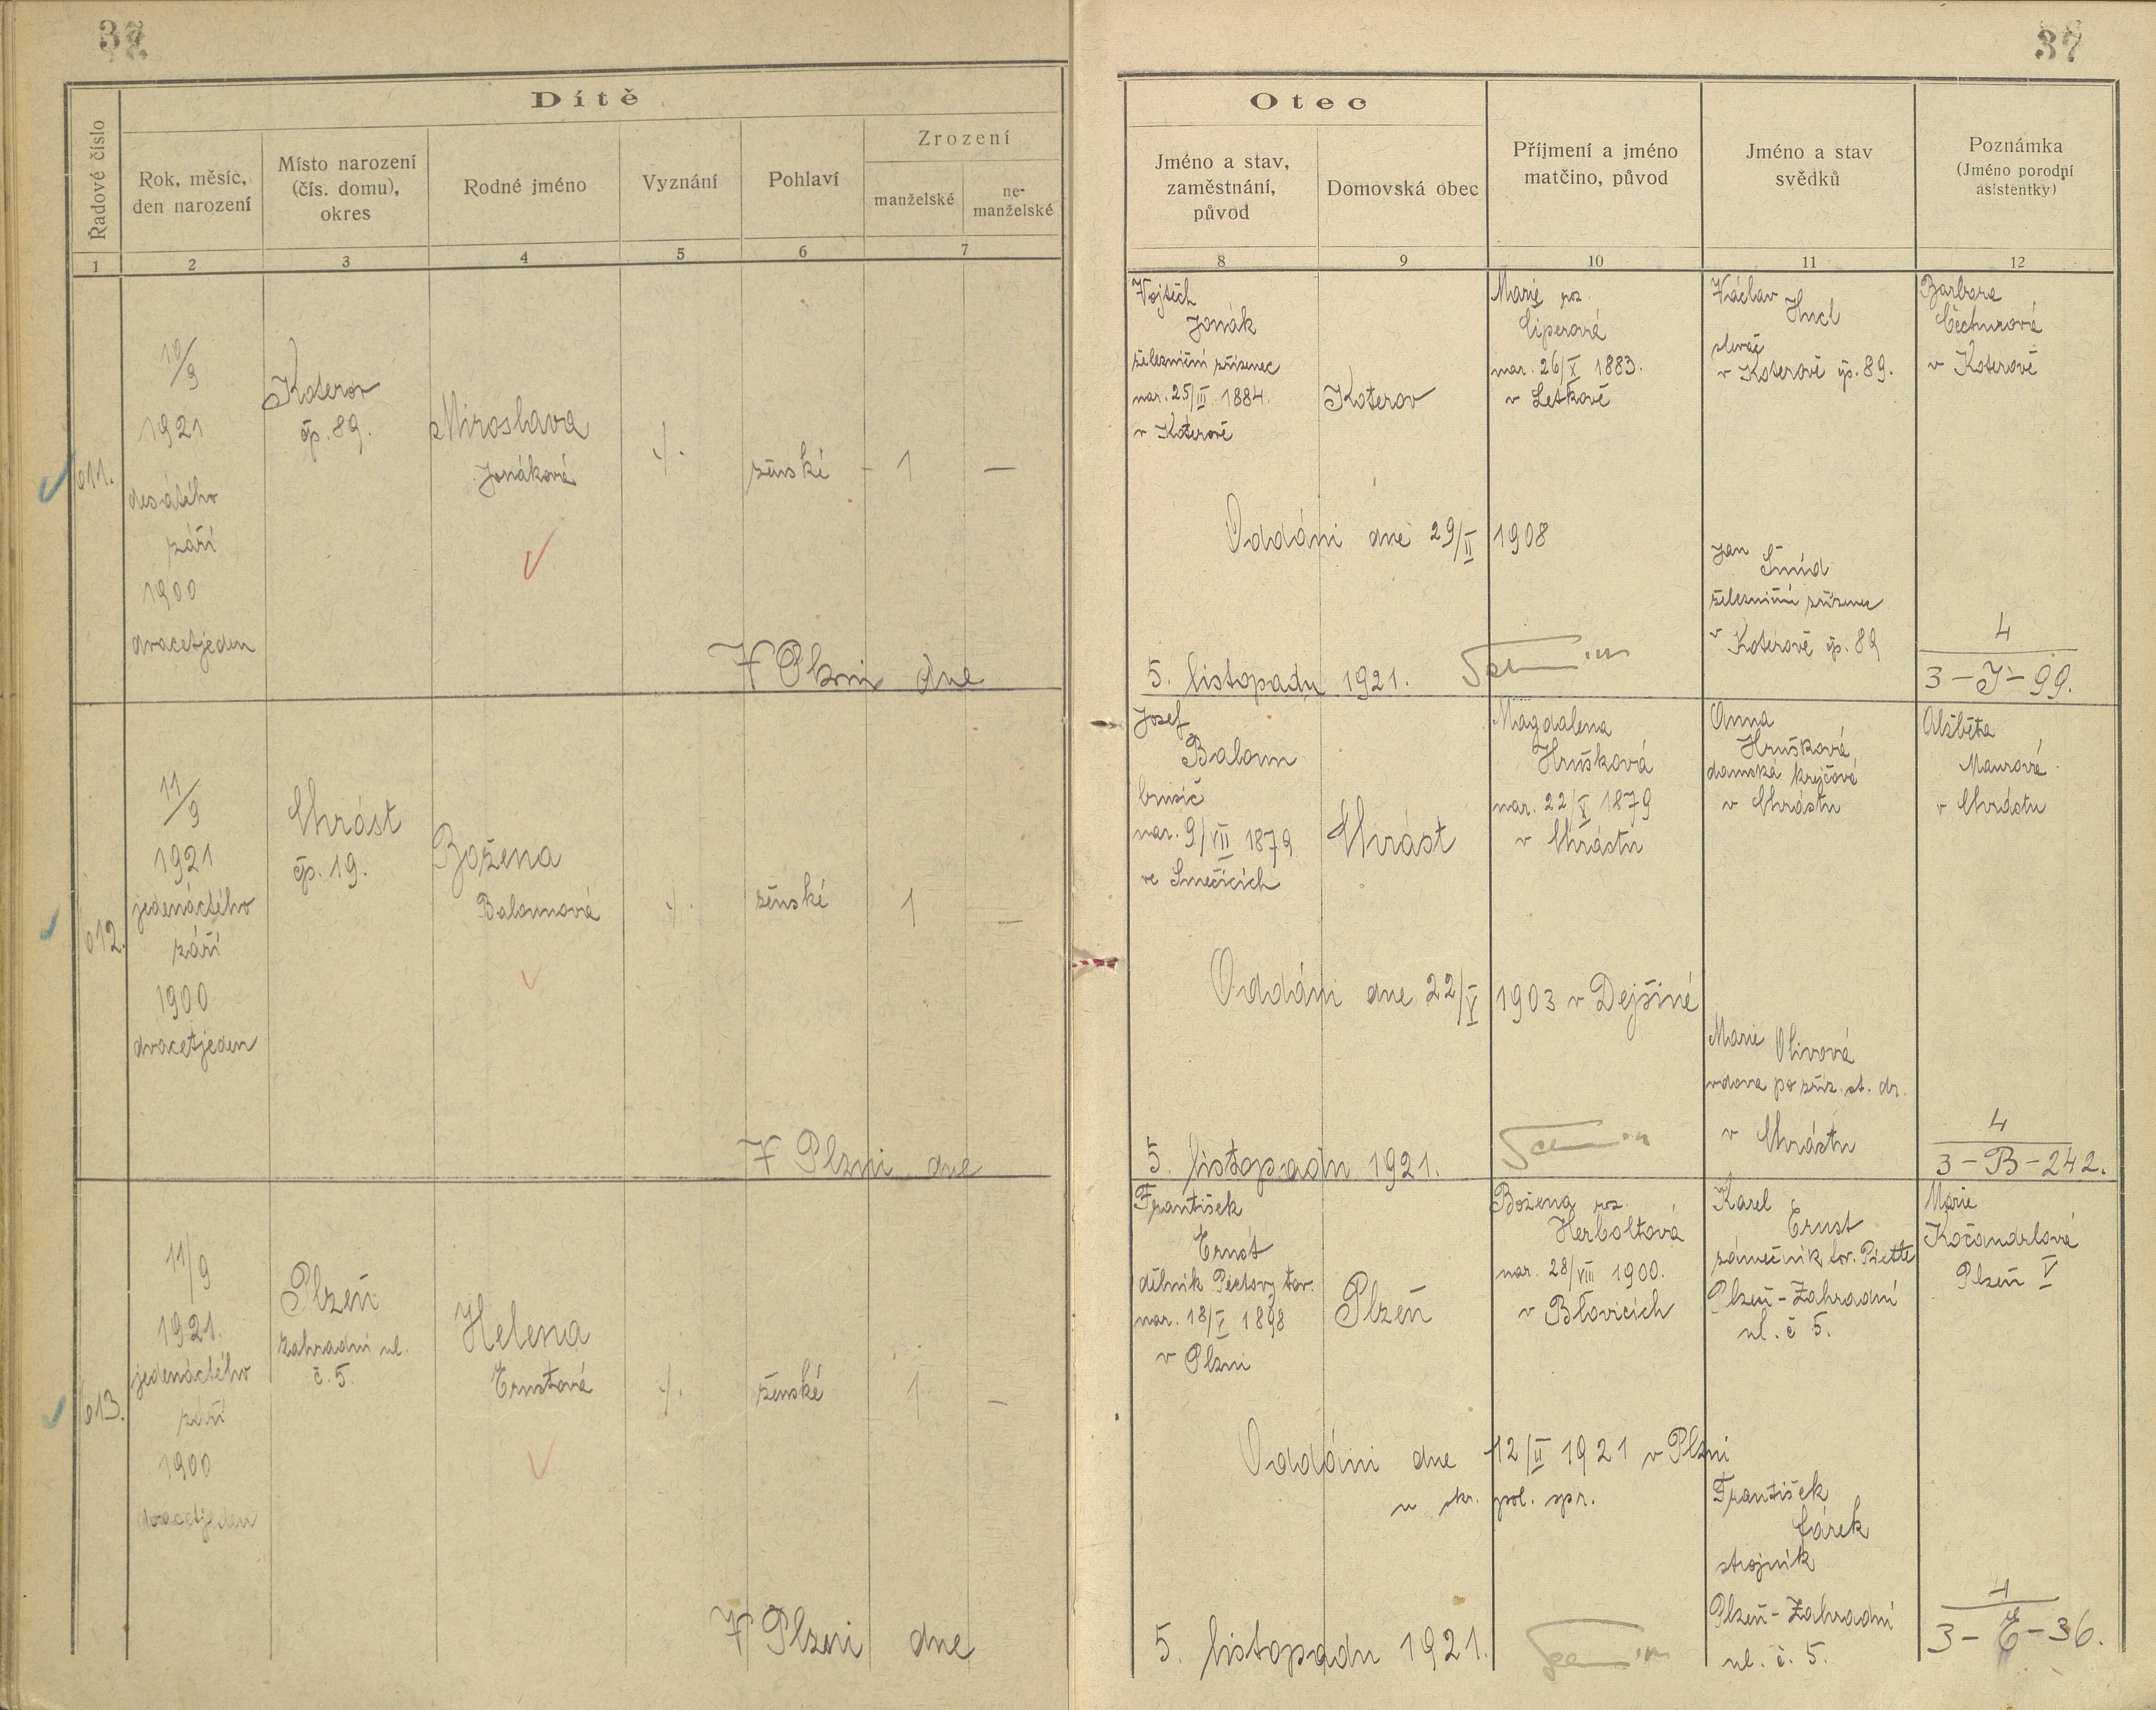 37
37
Dítě
Řadové číslo
Rok, měsíc,
den narození
Místo narození
(čís. domu),
okres
Rodné jméno
Vyznání
Pohlaví
Zrození
manželské
ne-
manželské
1
2
3
4
5
6
7
Otec
Jméno a stav,
zaměstnání,
původ
Domovská obec
Příjmení a jméno
matčino, původ
Jméno a stav
svědků
Poznámka
(Jméno porodní
asistentky)
8
9
10
11
12
611.
10/9
1921
desátého
září
1900
dvacetjeden
Koterov
čp. 89.
Miroslava
Jonáková
./.
ženské
1
—
V Plzni dne
Vojtěch
Jonák
železniční zřízenec
nar. 25/III. 1884.
v Koterově
Koterov
Marie roz.
Ciperová
nar. 26/X 1883.
v Letkově
Václav
Hucl
slevač
v Koterově čp. 89.
Barbora
Čechurová
v Koterově
Oddáni dne 29/II 1908
Jan
Šmíd
železniční zřízenec
v Koterově čp. 89
4
3-J-99.
5. listopadu 1921.
612.
11/9
1921
jedenáctého
září
1900
dvacetjeden
Chrást
čp. 19.
Božena
Balounová
./.
ženské
1
—
V Plzni dne
Josef
Baloun
brusič
nar. 9/VII 1879
ve Smečicích
Chrást
Magdalena
Hrušková
nar. 22/V 1879
v Chrástu
Anna
Hrušková
damská krejčová
v Chrástu
Alžběta
Maurová
v Chrástu
Oddáni dne 22/V 1903 v Dejšině
Marie Olivová
vdova po zříz. st. dr.
v Chrástu
4
3-B-242.
5. listopadu 1921.
613.
11/9
1921.
jedenáctého
září
1900
dvacetjeden
Plzeň
zahradní ul.
č. 5.
Helena
Ernstová
./.
ženské
1
—
V Plzni dne
František
Ernst
dělník Piettovy tov.
nar. 18/V 1898
v Plzni
Plzeň
Božena roz.
Herboltová
nar. 28/VIII 1900.
v Blovicích
Karel
Ernst
zámečník tov. Piette
Plzeň-Zahradní
ul. č 5.
Marie
Kočandrlová
Plzeň V
Oddáni dne 12/II 1921 v Plzni
u okr. pol. spr.
František
Cárek
strojník
Plzeň-Zahradní
ul. č. 5.
1
3-E-36.
5. listopadu 1921.